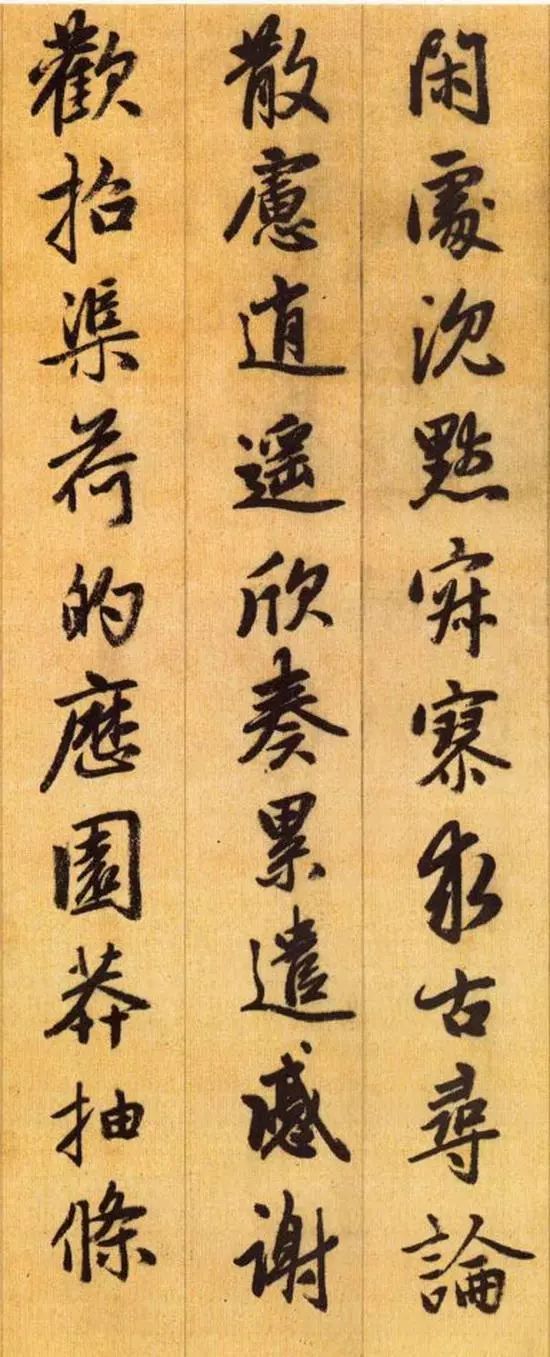 閑處沉默寂寥求古尋論
散慮逍遥欣奏累遣慼謝
歡招渠荷的歷園莽抽條